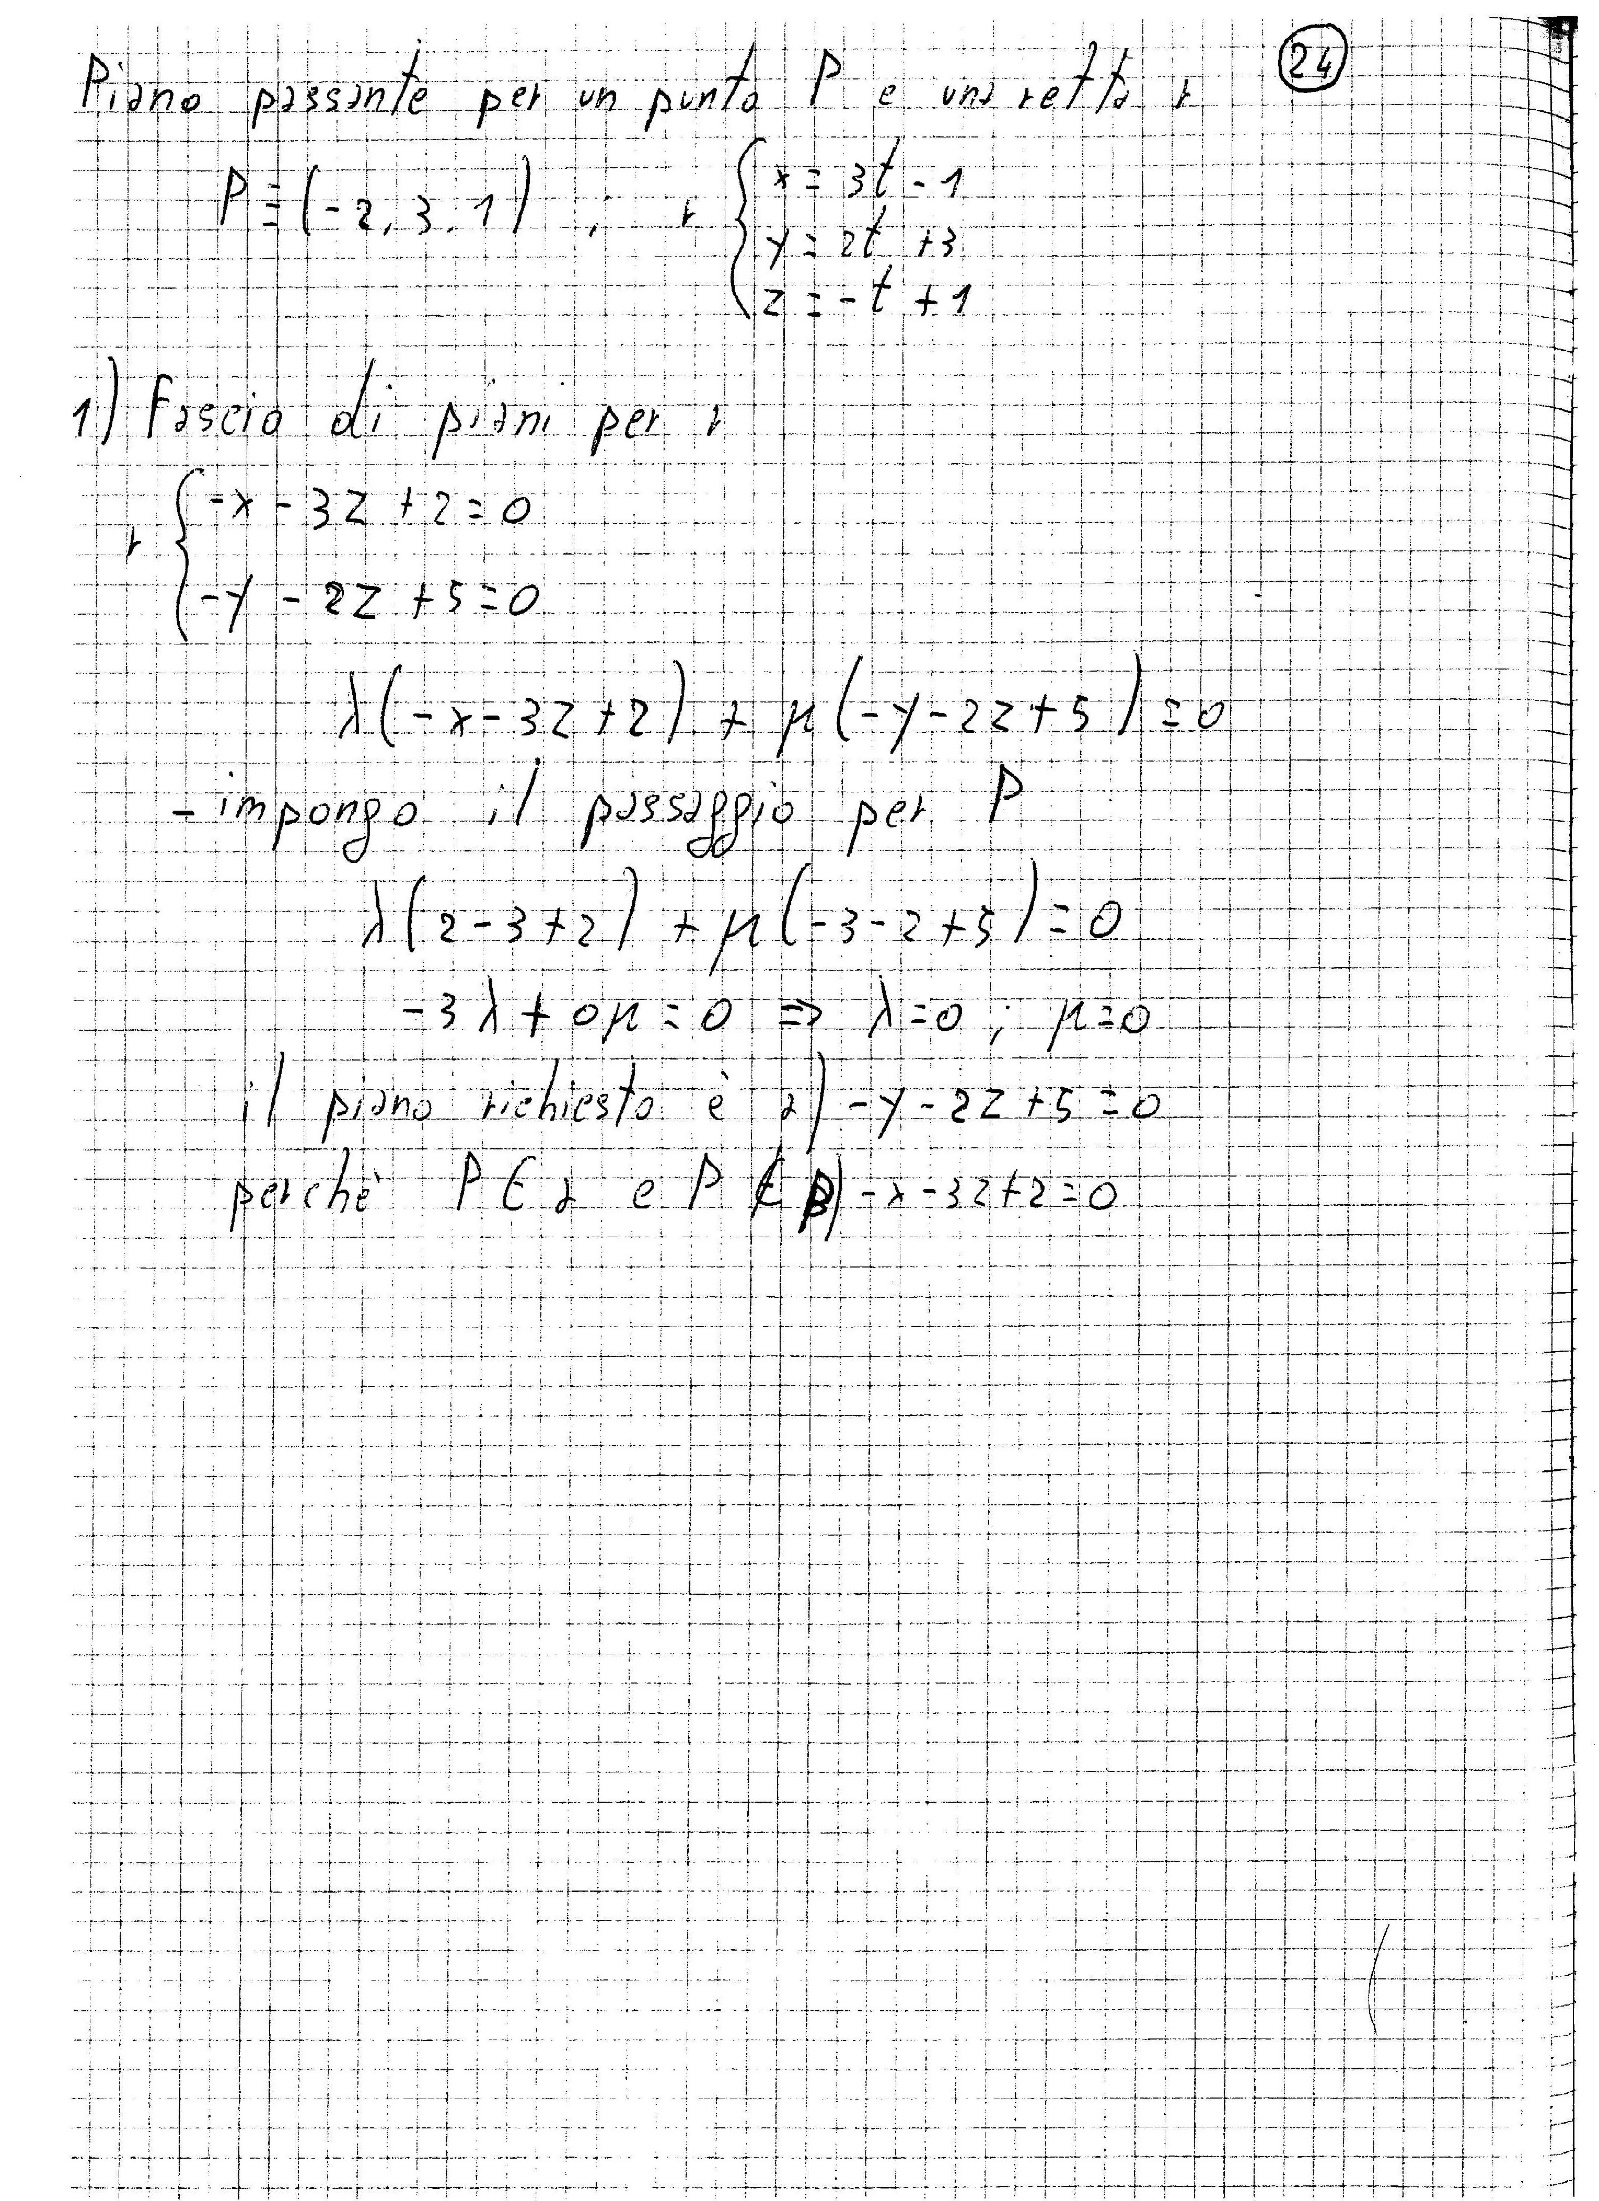 Piano passante per un punto P e una retta r
24
P ≡ (-2, 3, 1) ; r { x = 3t - 1
y = 2t + 3
z = -t + 1
1) Fascio di piani per r
r { -x - 3z + 2 = 0
-y - 2z + 5 = 0
λ(-x - 3z + 2) + μ(-y - 2z + 5) = 0
- impongo il passaggio per P
λ(2 - 3 + 2) + μ(-3 - 2 + 5) = 0
-3λ + 0μ = 0 ⇒ λ = 0 ; μ = 0
il piano richiesto è α) -y - 2z + 5 = 0
perché P ∈ α e P ∉ β) -x - 3z + 2 = 0